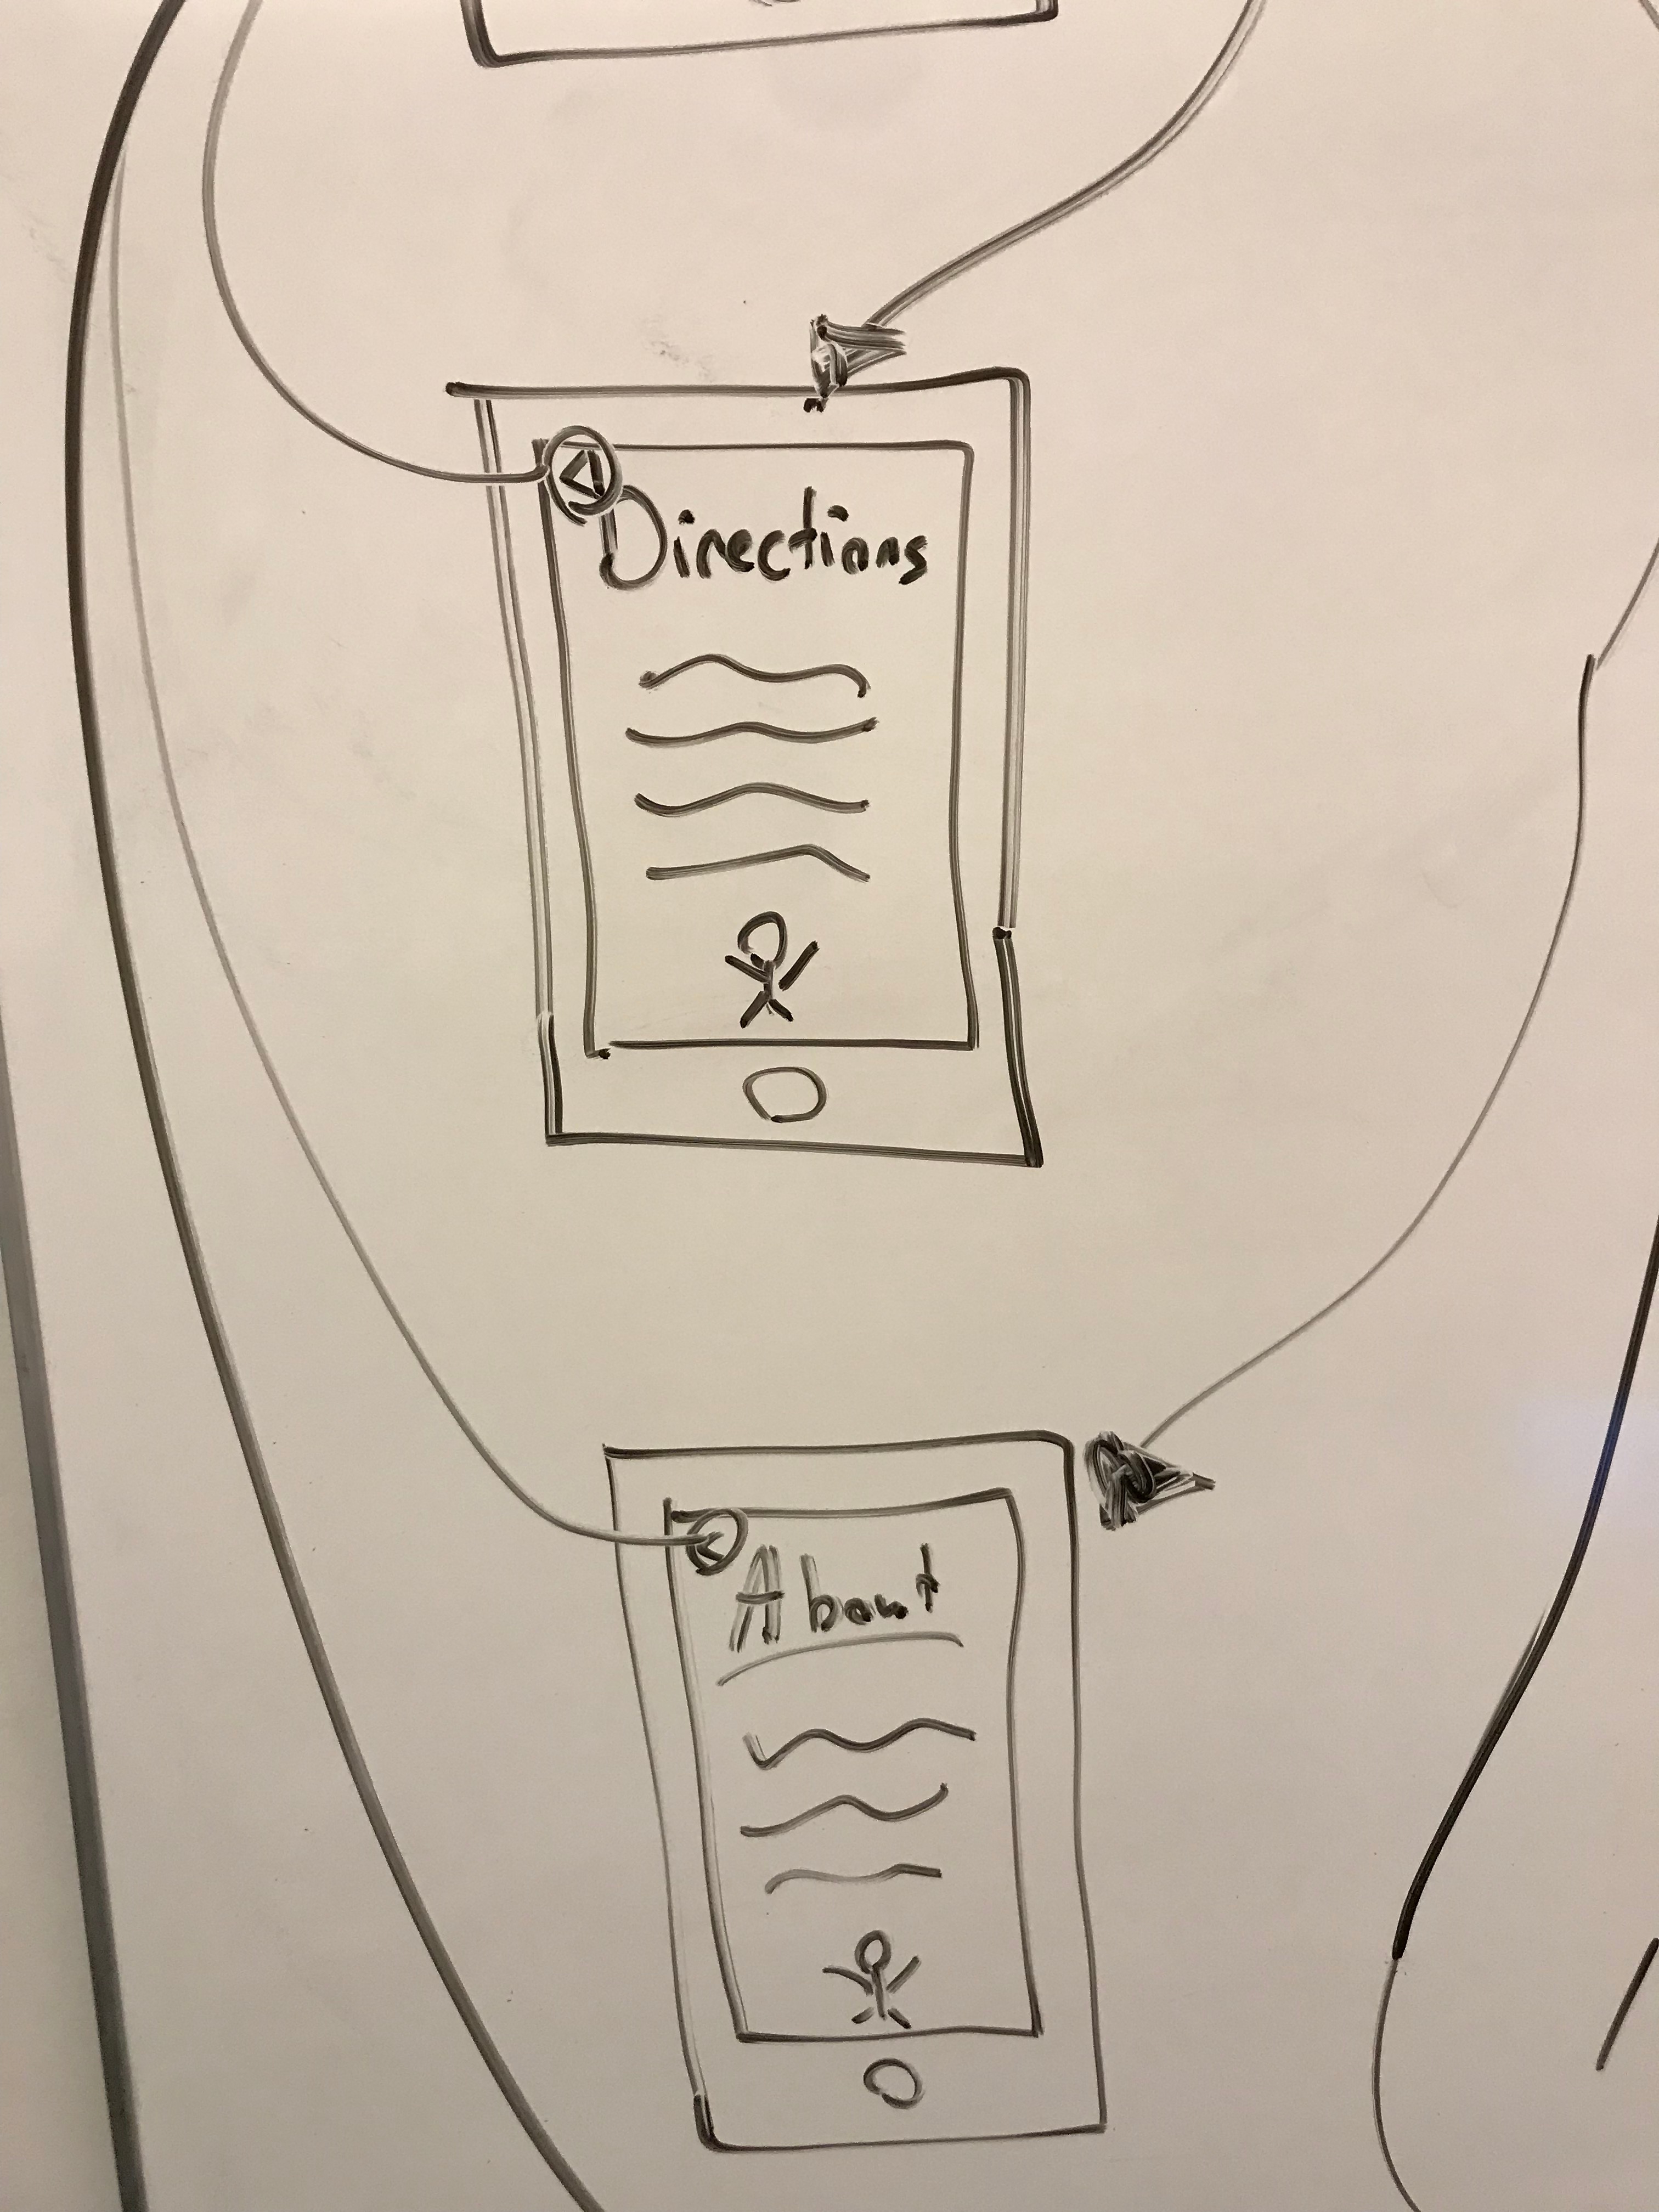 Directions
About